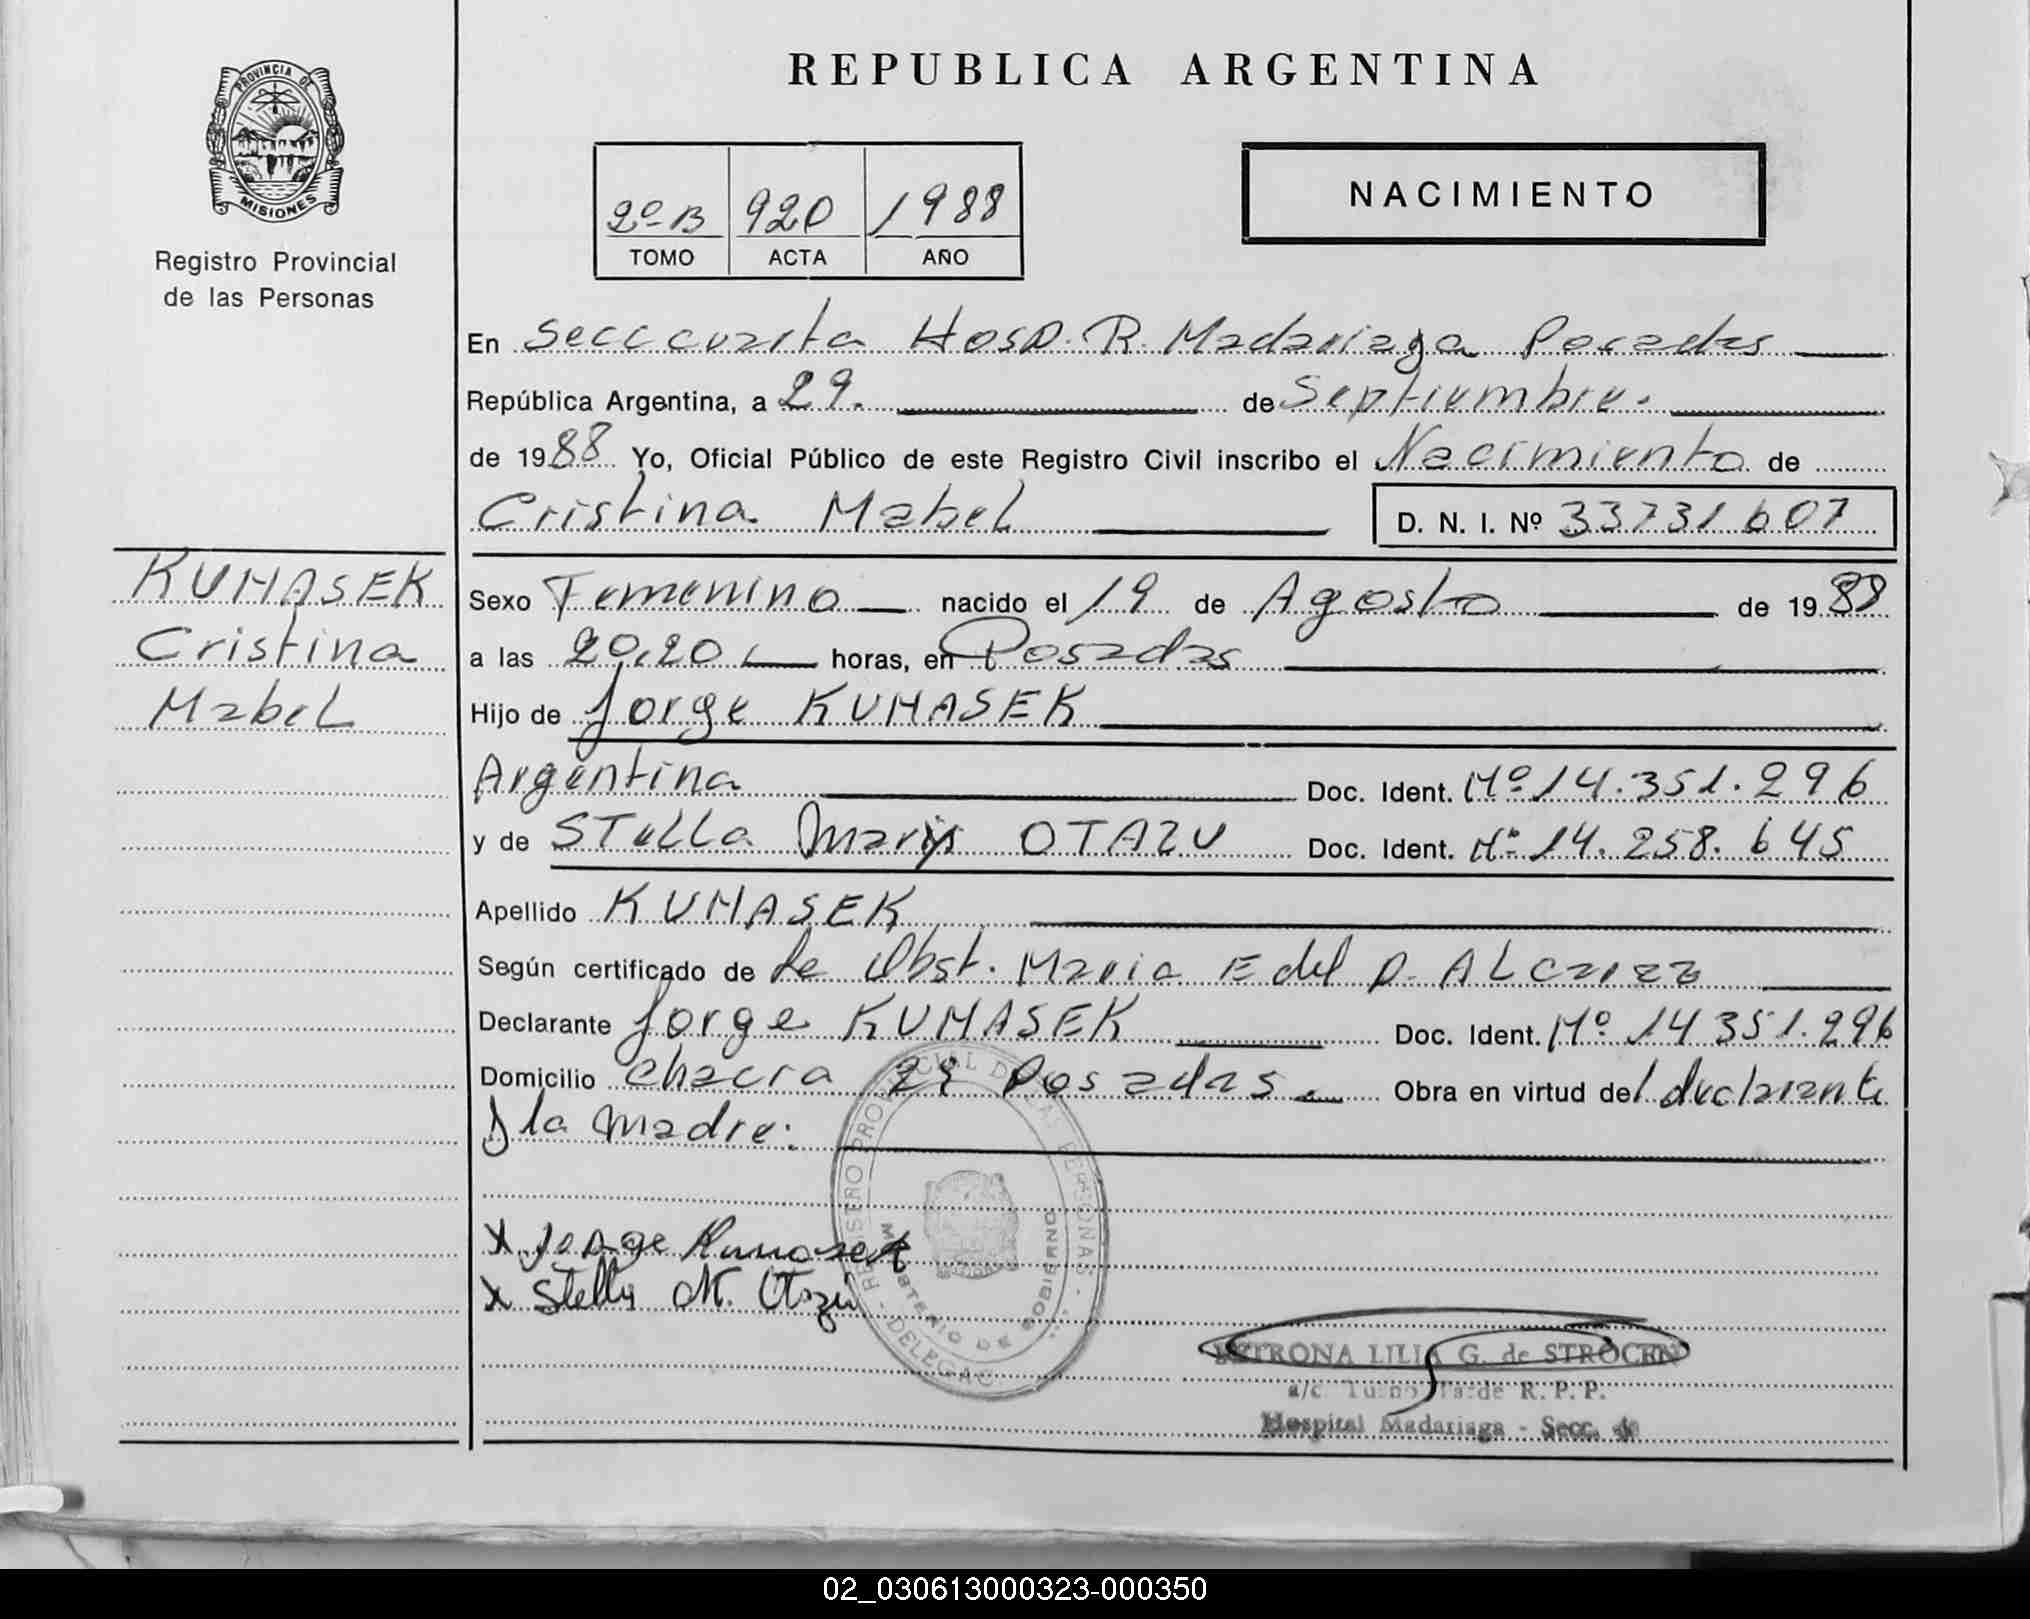 REPUBLICA ARGENTINA
PROVINCIA DE
MISIONES
Registro Provincial
de las Personas
2º B 920 1988
TOMO ACTA AÑO
NACIMIENTO
En Secc cuarta Hosp. R. Madariaga Posadas
República Argentina, a 29. de Septiembre.
de 1988 Yo, Oficial Público de este Registro Civil inscribo el Nacimiento de
Cristina Mabel D. N. I. Nº 33731607
KUMASEK
Cristina
Mabel
Sexo Femenino nacido el 19 de Agosto de 1988
a las 20,20 horas, en Posadas
Hijo de Jorge KUMASEK
Argentina Doc. Ident. Mº 14.351.296
y de Stella Maris OTAZU Doc. Ident. Mº 14.258.645
Apellido KUMASEK
Según certificado de la Obst. Maria E del P. ALcaraz
Declarante Jorge KUMASEK Doc. Ident. Mº 14 351.296
Domicilio Chacra Posadas. Obra en virtud del declarante
y la madre.
REGISTRO PROVINCIAL DE LAS PERSONAS - DELEGAC.
MINISTERIO DE GOBIERNO
X Jorge Kumasek
X Stella M. Otazú
PETRONA LILIA G. de STROCEN
a/c Turno Tarde R. P. P.
Hospital Madariaga - Secc. 4a
02_030613000323-000350